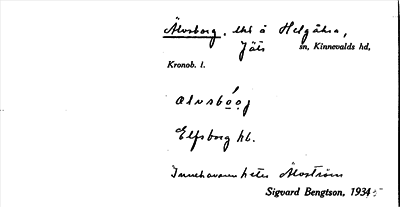 Älvsborg, lht å Helgåsa,
Jäts sn, Kinnevalds hd,
Kronob. l.
Elfsborg hb.
Innehavaren heter Älvström
Sigvard Bengtson, 1934